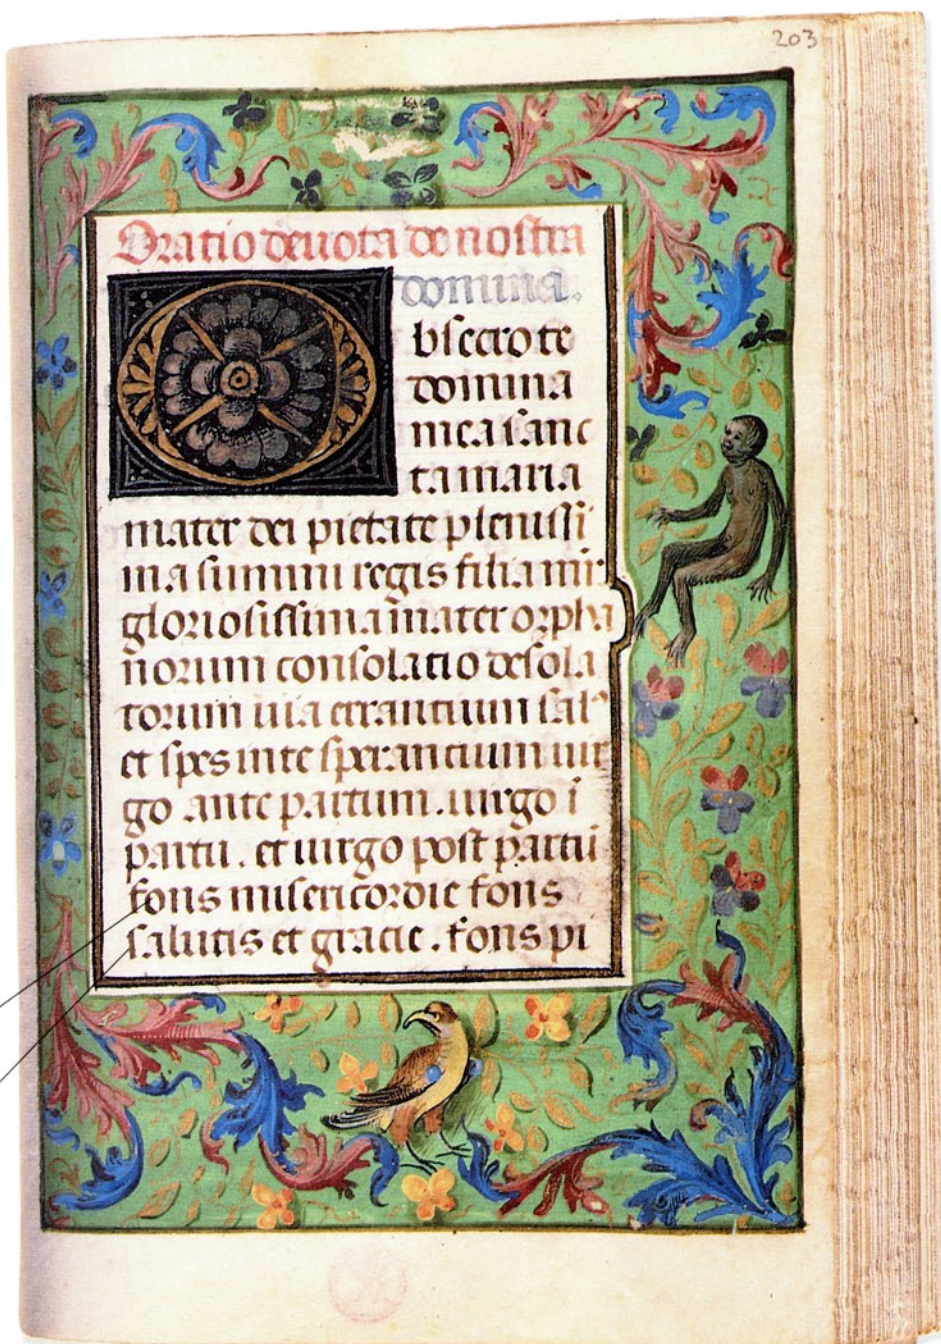 203
Oratio deuota de nostra
domina.
bsecro te
domina
mea sanc
ta maria
mater dei pietate plenissi
ma summi regis filia mr̃
gloriosissima mater orpha
norum consolatio desola
torum uia errantium sal⁹
et spes in te sperantium uir
go ante partum. uirgo ī
partu. et uirgo post partū
fons misericordie fons
salutis et gracie. fons pi